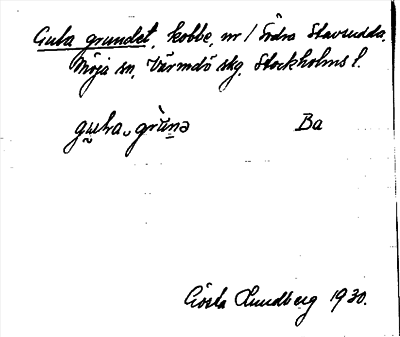 Gula grundet, kobbe, nr / Södra Stavsudda,
Möja sn, Värmdö skg, Stockholms l.
gu̯la grùnə Ba
Gösta Lundberg 1930.